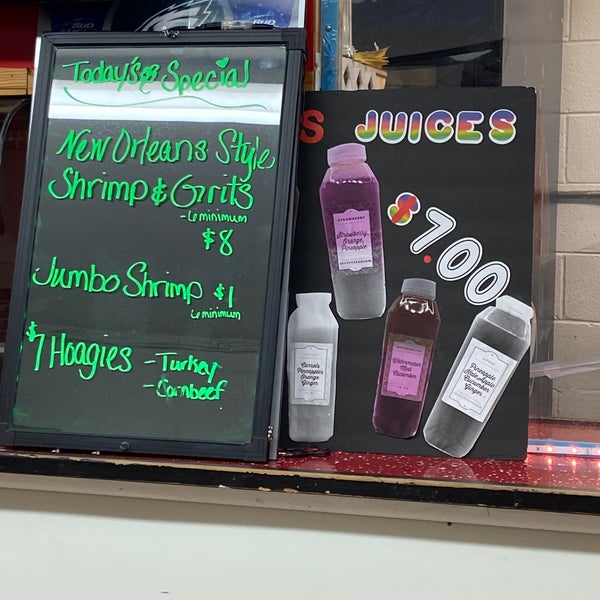 BUD
Today's Special
New Orleans Style
Shrimp & Grits
- 6 minimum
$8
Jumbo Shrimp $1
6 minimum
$7 Hoagies - Turkey
- Cornbeef
S JUICES
$7.00
Strawberry,
Orange,
Pineapple
Carrots
Pineapples
Orange
Ginger
Watermelon
Mint
Cucumber
Pineapple
Kale Apple
Cucumber
Ginger